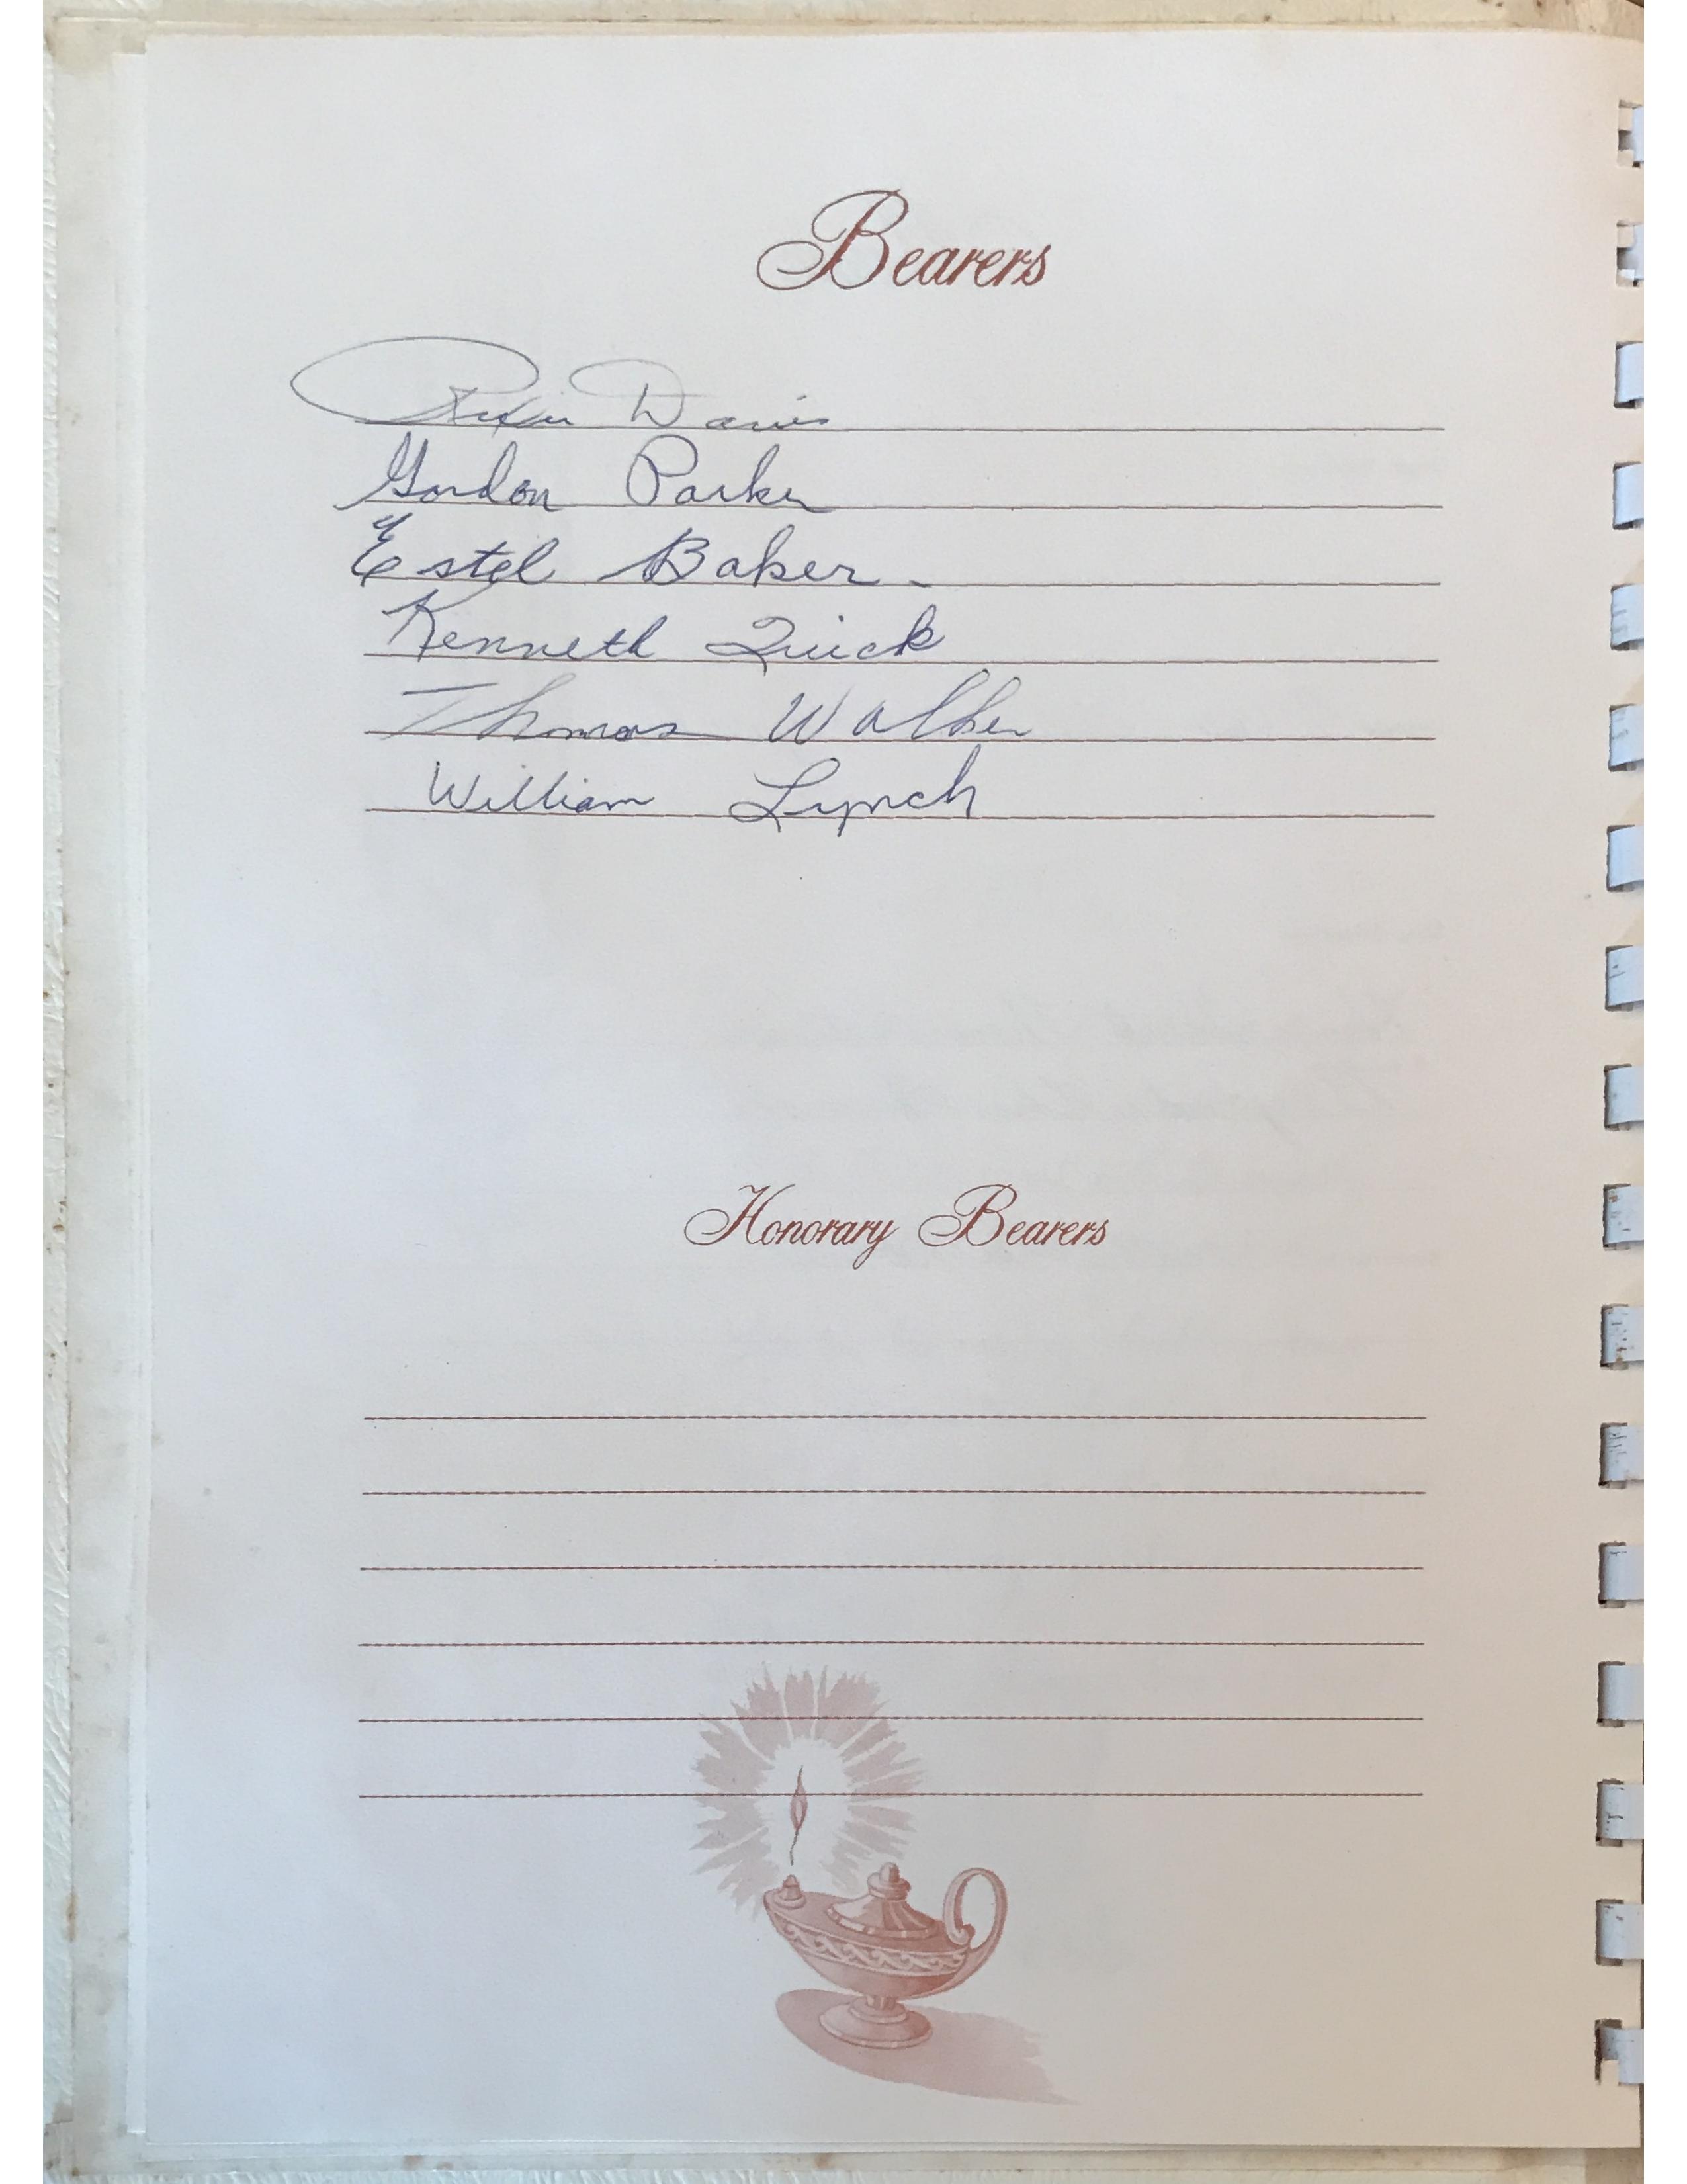 Bearers
Davis
Gordon Parker
Estel Baker
Kenneth Quick
Thomas Walker
William Lynch
Honorary Bearers